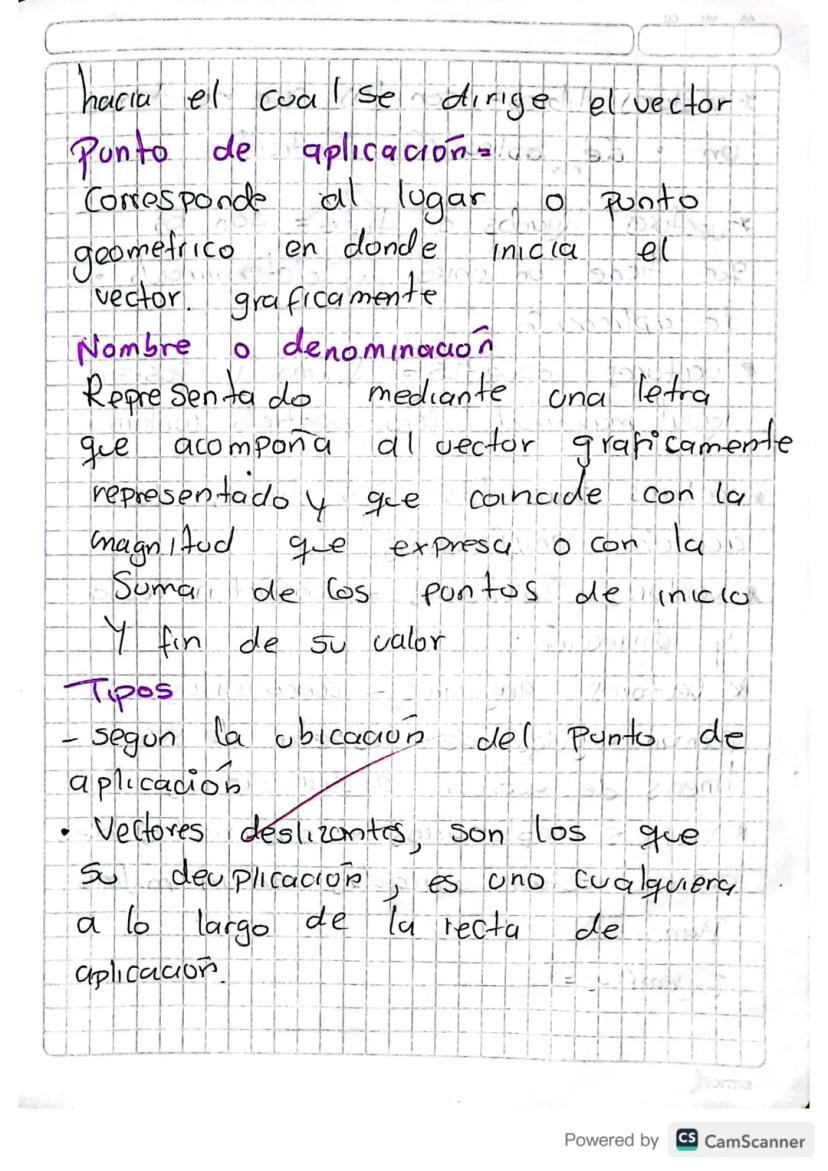 hacia el cual se dirige el vector
Punto de aplicación=
Corresponde al lugar o punto
geometrico en donde inicia el
vector. graficamente
Nombre o denominación
Representado mediante una letra
que acompaña al vector graficamente
representado y que coincide con la
magnitud que expresa o con la
Suma de los puntos de inicio
Y fin de su valor
Tipos
- segun la ubicación del Punto de
aplicación
• Vectores deslizantes, son los que
su deuplicación, es uno cualquiera
a lo largo de la recta de
aplicación.
Powered by CS CamScanner